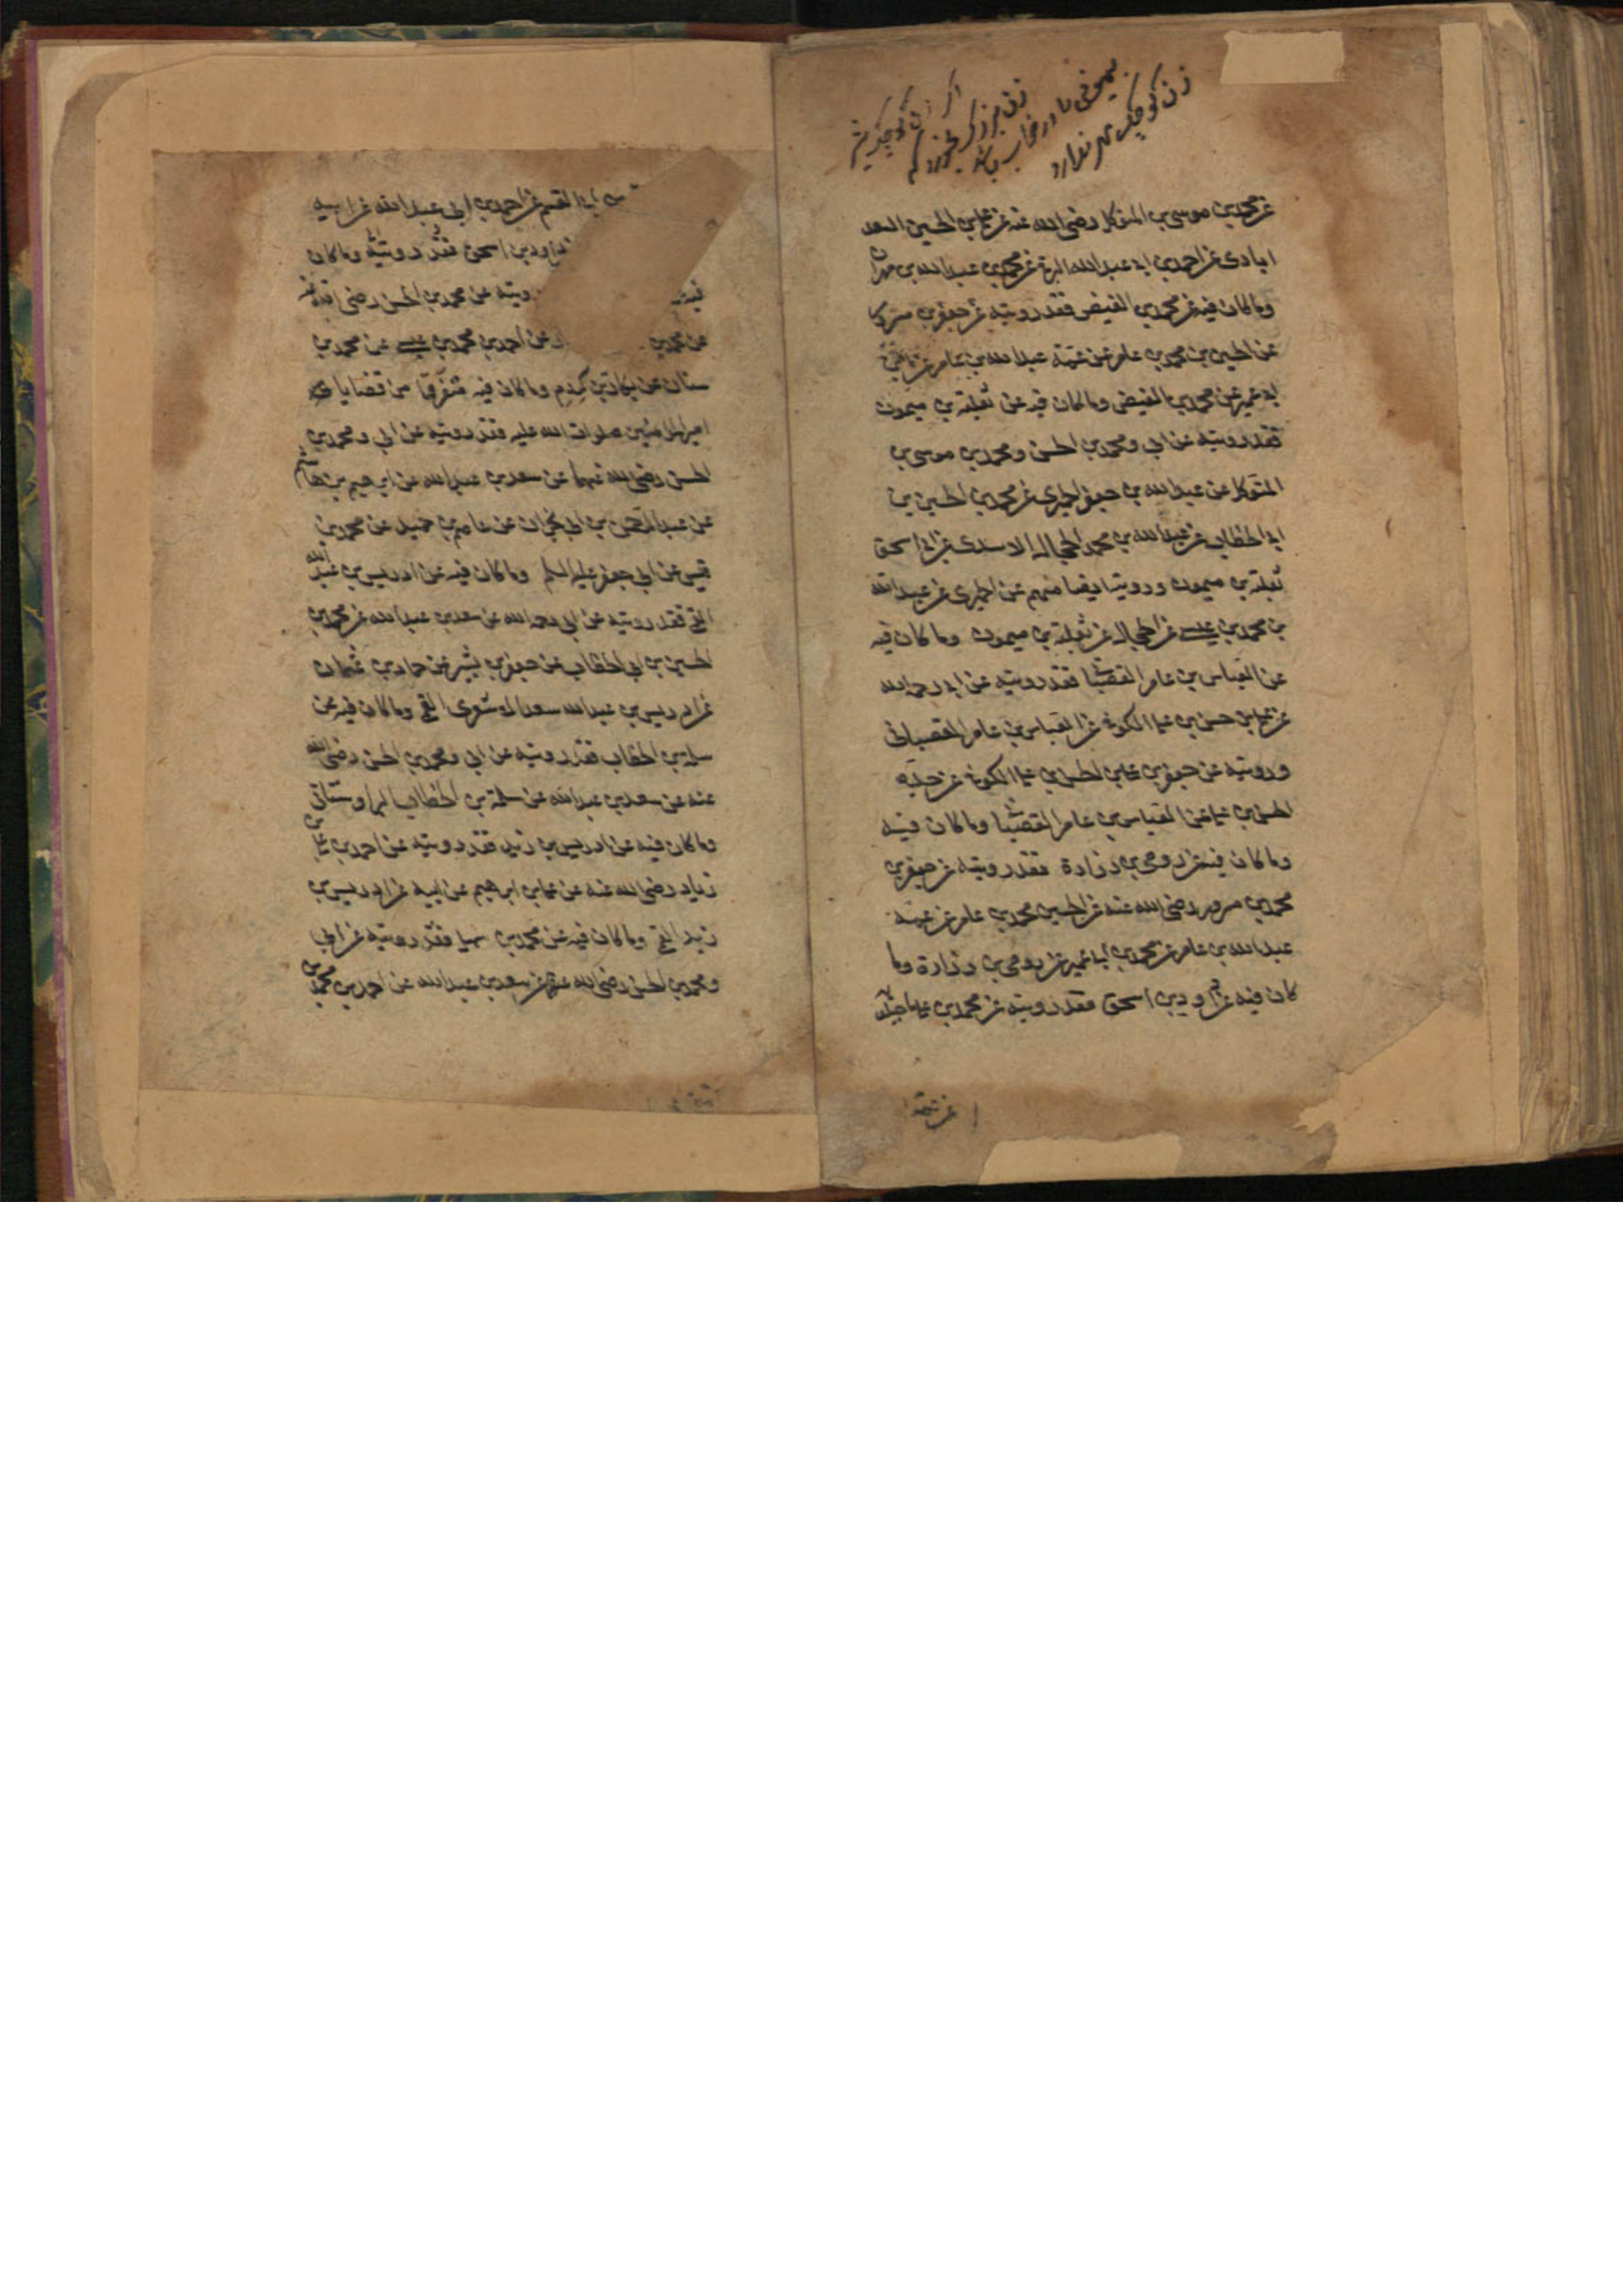 زن کوچک مهر ندارد
عن محمد بن موسی بن المتوکل رضی الله عنه عن علی بن الحسین السعد
ابادی عن احمد بن ابی عبد الله البرقی عن محمد بن عبد الله بن مهران
وما کان فیه عن محمد بن الفیض فقد رویته عن جعفر بن مسرور
عن الحسین بن محمد بن عامر عن عمه عبد الله بن عامر عن
ابی عمیر عن محمد بن الفیض وما کان فیه عن ثعلبة بن میمون
فقد رویته عن ابی ومحمد بن الحسن ومحمد بن موسی بن
المتوکل عن عبد الله بن جعفر الحمیری عن محمد بن الحسین بن
ابی الخطاب عن عبد الله بن محمد الحجال الاسدی عن ابی اسحق
ثعلبة بن میمون ورویته ایضا عنهم عن الحمیری عن عبد الله
بن محمد بن عیسی عن الحجال عن ثعلبة بن میمون وما کان فیه
عن العباس بن عامر القصبانی فقد رویته عن ابی رحمه الله
عن علی بن حسن بن علی الکوفی عن العباس بن عامر القصبانی
ورویته عن جعفر بن علی بن الحسن بن علی الکوفی عن جده
الحسن بن علی عن العباس بن عامر القصبانی وما کان فیه
وما کان فیه عن رومی بن زرارة فقد رویته عن جعفر بن
محمد بن مسرور رضی الله عنه عن الحسین محمد بن عامر عن عمه
عبد الله بن عامر عن محمد بن ابی عمیر عن رومی بن زرارة وما
کان فیه عن داود بن اسحق فقد رویته عن محمد بن علی ماجیلویه
عن عمه
ابی القسم عن احمد بن ابی عبد الله عن ابیه
داود بن اسحق فقد رویته وما کان
فیه رویته عن محمد بن الحسن رضی الله عنه
عن محمد بن عن احمد بن محمد بن عیسی عن محمد بن
سنان عن بکار بن کردم وما کان فیه متفرقا من قضایا
امیر المؤمنین صلوات الله علیه فقد رویته عن ابی ومحمد بن
الحسن رضی الله عنهما عن سعد بن عبد الله عن ابراهیم بن هاشم
عن عبد الرحمن بن ابی نجران عن عاصم بن حمید عن محمد بن
قیس عن ابی جعفر علیه السلم وما کان فیه عن ادریس بن عبد الله
القمی فقد رویته عن ابی رحمه الله عن سعد بن عبد الله عن محمد بن
الحسین بن ابی الخطاب عن جعفر بن بشیر عن حماد بن عثمان
عن ادریس بن عبد الله سعد الاشعری القمی وما کان فیه عن
سلمة بن الخطاب فقد رویته عن ابی ومحمد بن الحسن رضی الله
عنه عن سعد بن عبد الله عن سلمة بن الخطاب البراوستانی
وما کان فیه عن ادریس بن زید فقد رویته عن احمد بن علی بن
زیاد رضی الله عنه عن علی بن ابراهیم عن ابیه عن ادریس بن
زید القمی وما کان فیه عن محمد بن سهل فقد رویته عن ابی
ومحمد بن الحسن رضی الله عنهما عن سعد بن عبد الله عن احمد بن محمد بن